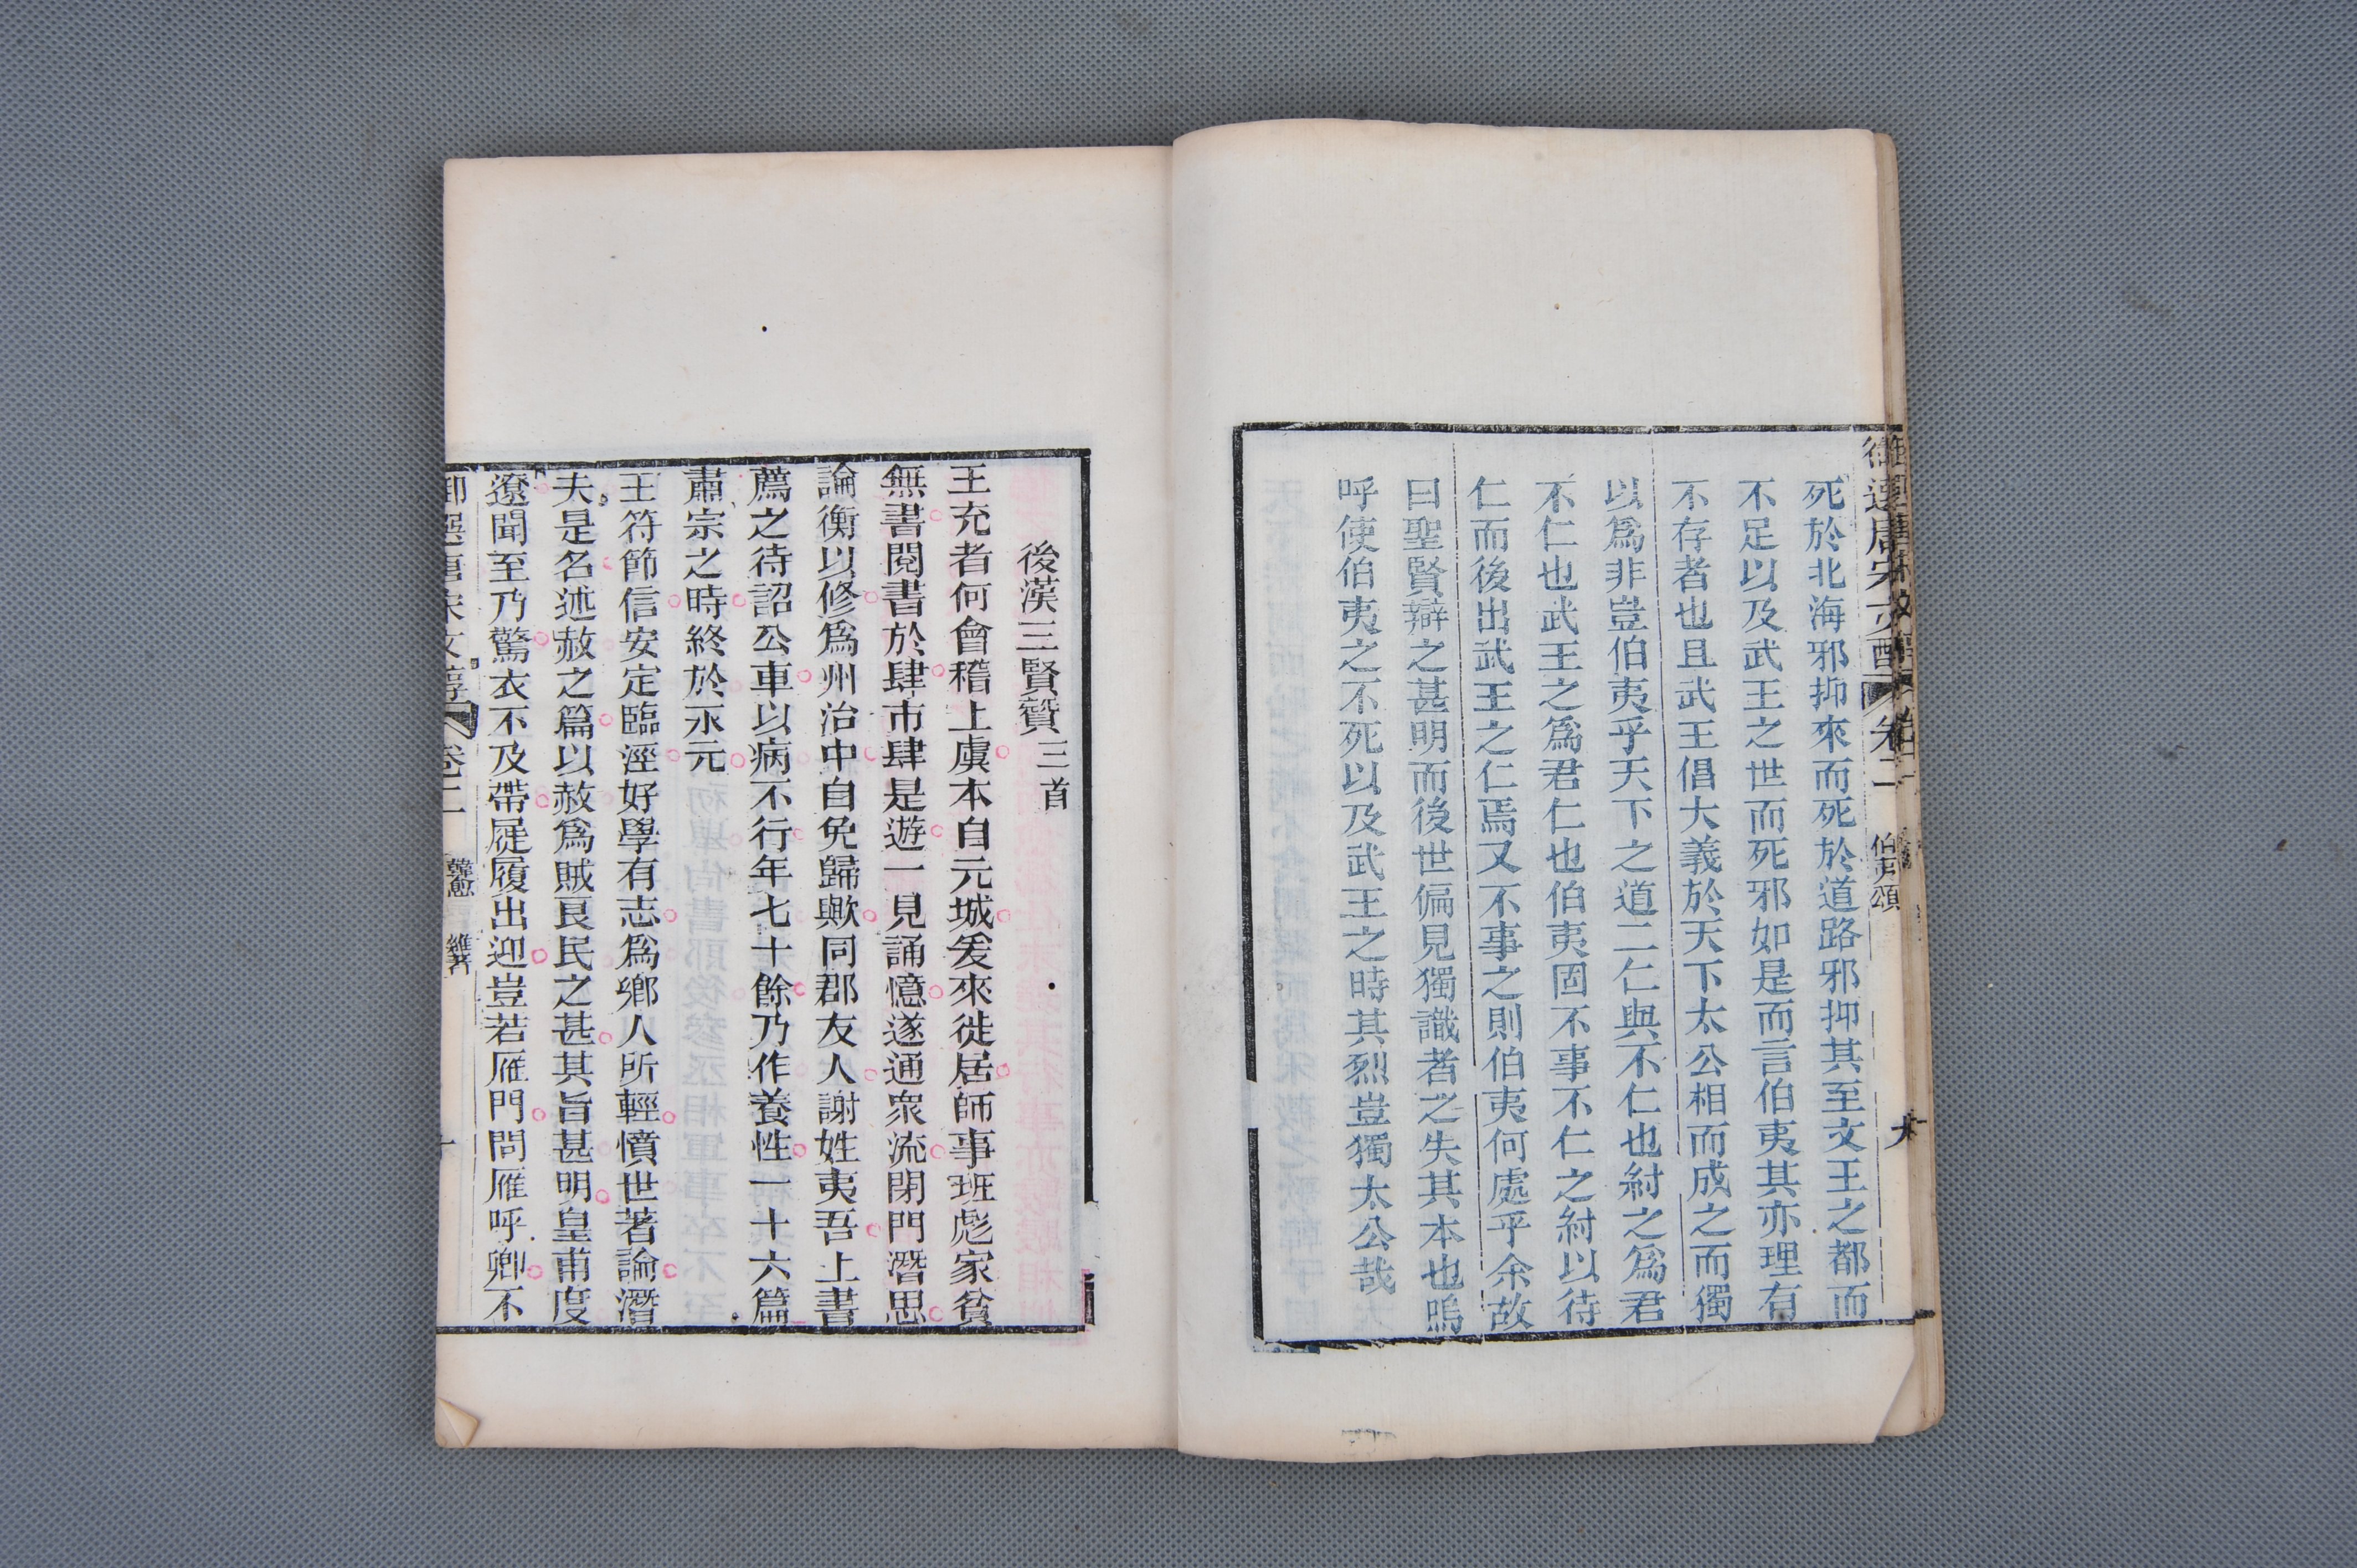 御選唐宋文醇
卷二
伯夷頌
死於北海邪抑來而死於道路邪抑其至文王之都而
不足以及武王之世而死邪如是而言伯夷其亦理有
不存者也且武王倡大義於天下太公相而成之而獨
以爲非豈伯夷乎天下之道二仁與不仁也紂之爲君
不仁也武王之爲君仁也伯夷固不事不仁之紂以待
仁而後出武王之仁焉又不事之則伯夷何處乎余故
曰聖賢辯之甚明而後世偏見獨識者之失其本也嗚
呼使伯夷之不死以及武王之時其烈豈獨太公哉
後漢三賢贊三首
王充者何會稽上虞本自元城爰來徙居師事班彪家貧
無書閱書於肆市肆是遊一見誦憶遂通衆流閉門潛思
論衡以修爲州治中自免歸歟同郡友人謝姓夷吾上書
薦之待詔公車以病不行年七十餘乃作養性一十六篇
肅宗之時終於永元
王符節信安定臨涇好學有志爲鄉人所輕憤世著論潛
夫是名述赦之篇以赦爲賊良民之甚其旨甚明皇甫度
遼聞至乃驚衣不及帶屣履出迎豈若雁門問雁呼卿不
御選唐宋文醇
卷二
韓愈
雜著